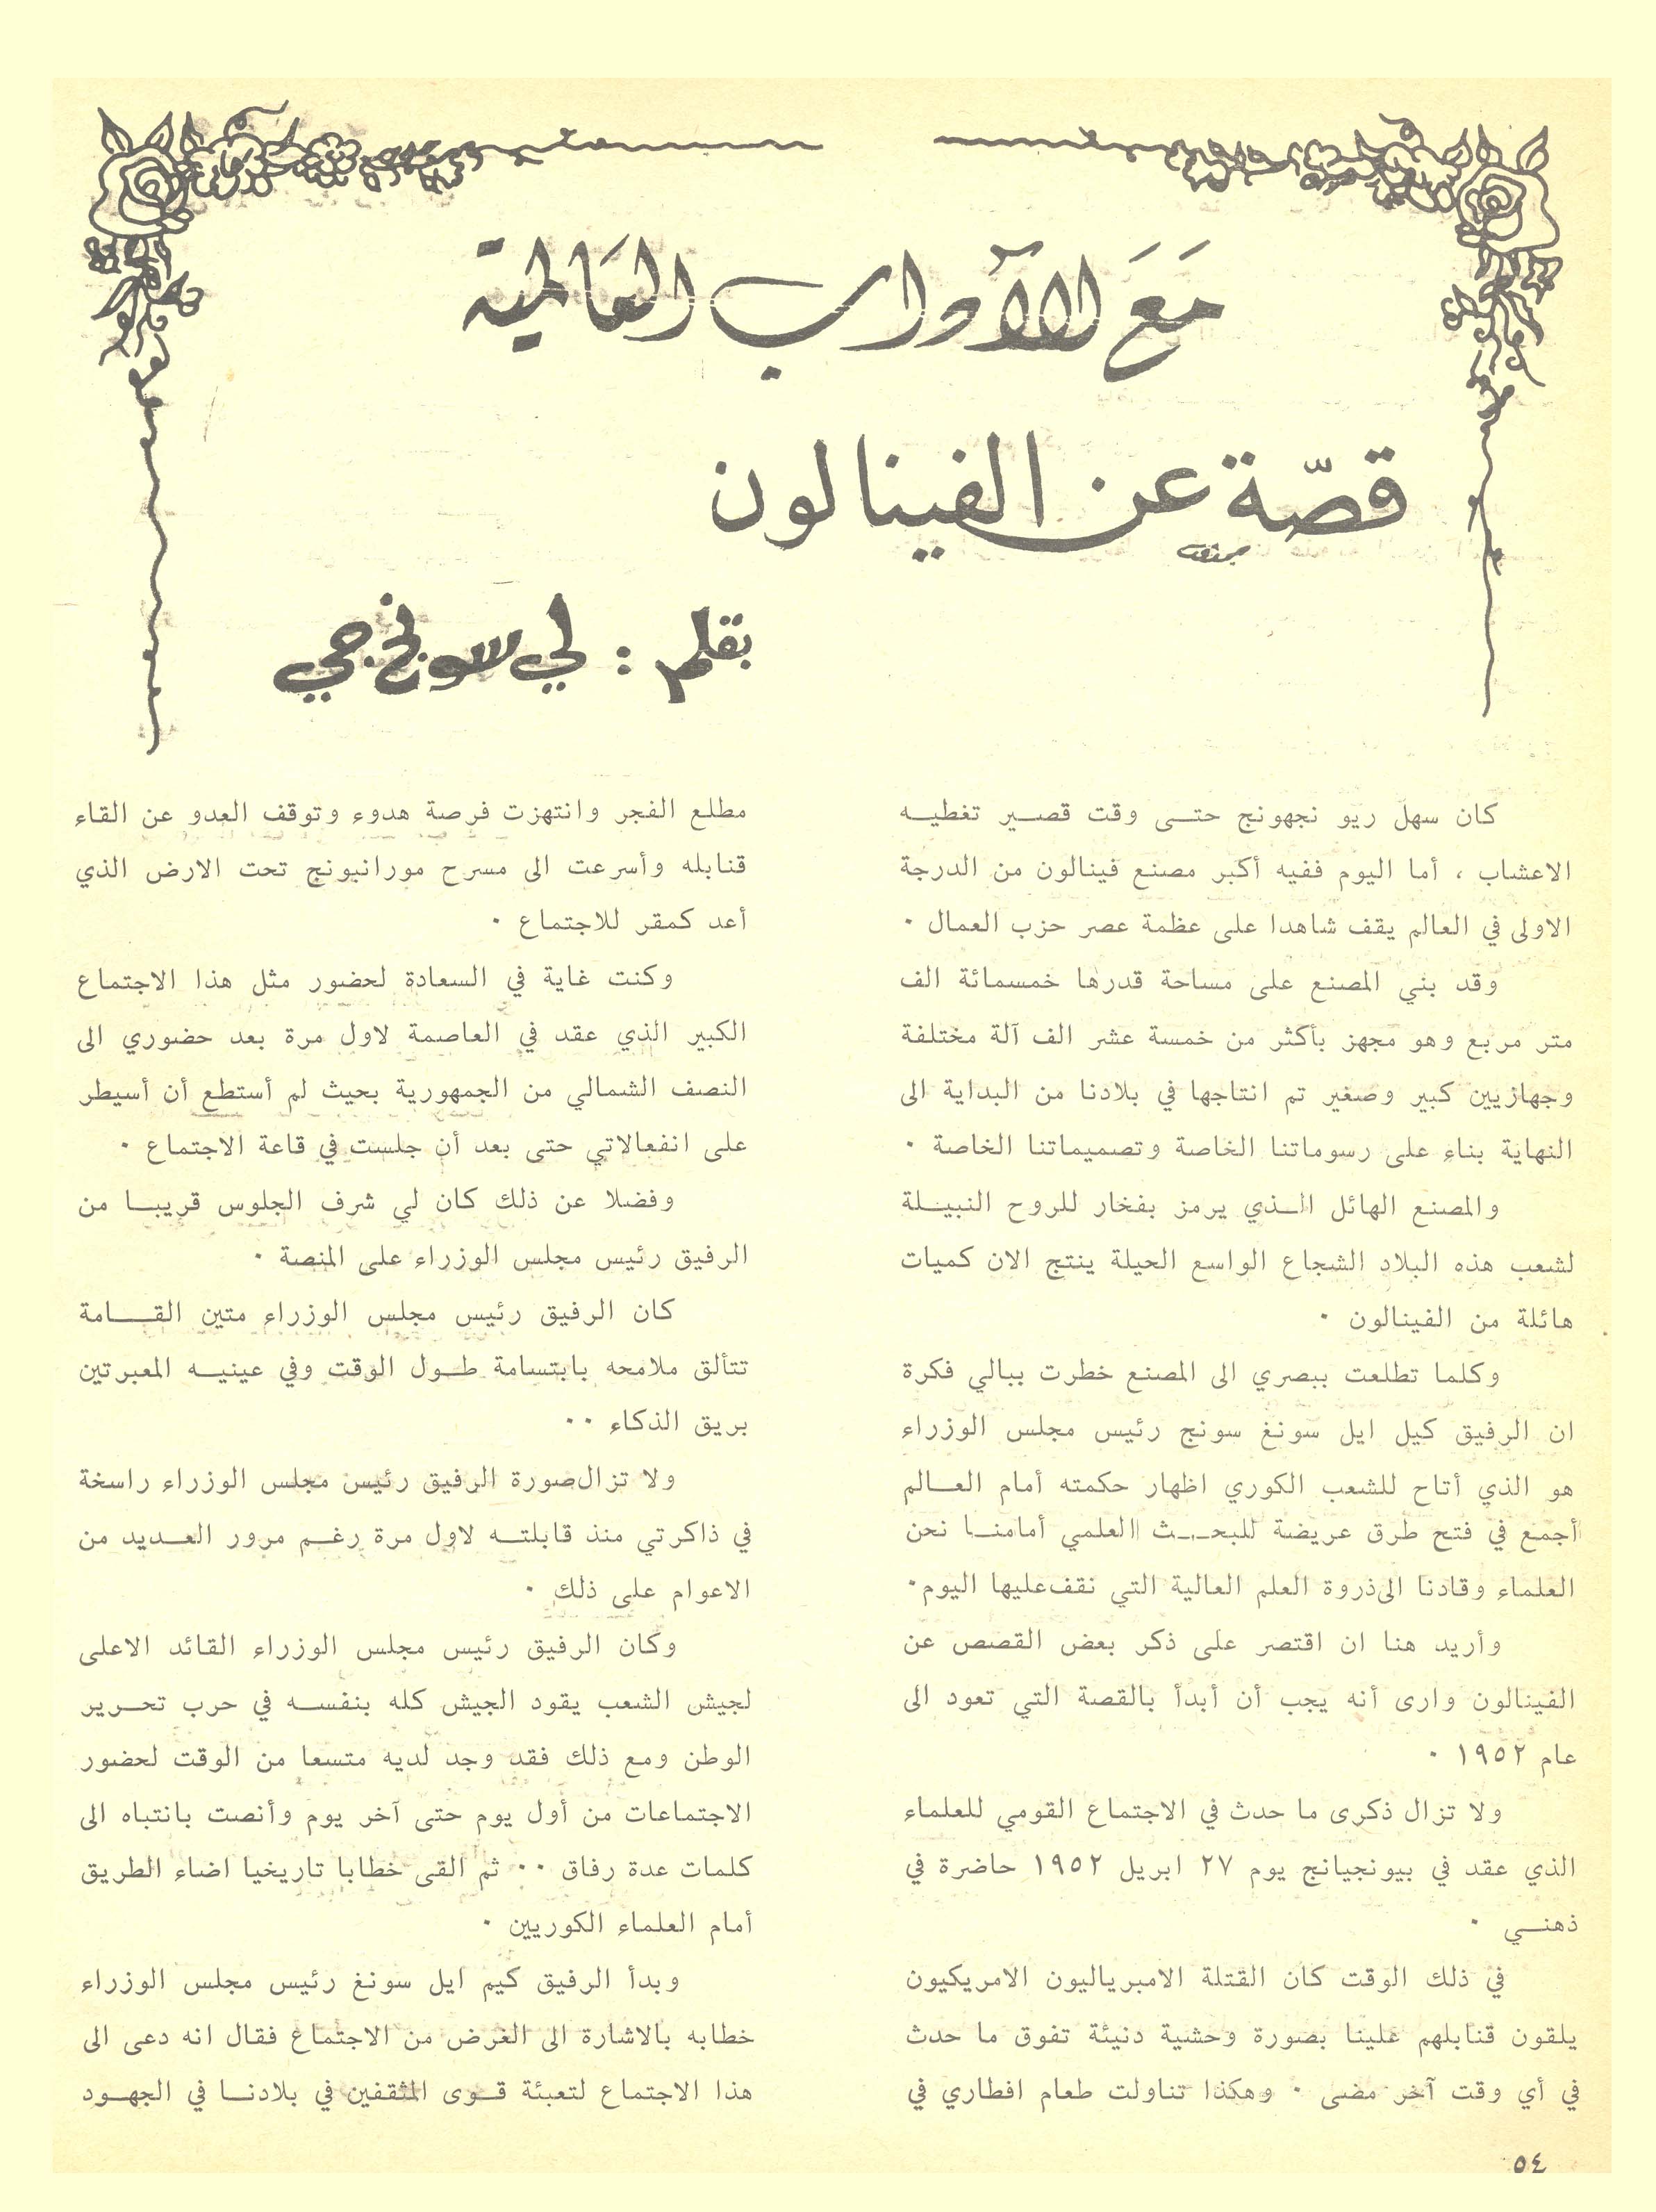 مَعَ الآداب العَالمية
قصّة عن الفينالون
بقلم : لي سونج جي
كان سهل ريو نجهونج حتــى وقت قصــير تغطيــه
الاعشاب ، أما اليوم ففيه أكبر مصنع فينالون من الدرجة
الاولى في العالم يقف شاهدا على عظمة عصر حزب العمال ٠
وقد بني المصنع على مساحة قدرها خمسمائة الف
متر مربع وهو مجهز بأكثر من خمسة عشر الف آلة مختلفة
وجهازيين كبير وصغير تم انتاجها في بلادنا من البداية الى
النهاية بناء على رسوماتنا الخاصة وتصميماتنا الخاصة ٠
والمصنع الهائل الــذي يرمز بفخار للروح النبيــلة
لشعب هذه البلاد الشجاع الواسع الحيلة ينتج الان كميات
هائلة من الفينالون ٠
وكلما تطلعت ببصري الى المصنع خطرت ببالي فكرة
ان الرفيق كيل ايل سونغ سونج رئيس مجلس الوزراء
هو الذي أتاح للشعب الكوري اظهار حكمته أمام العــالم
أجمع في فتح طرق عريضة للبحــث العلمي أمامنــا نحن
العلماء وقادنا الى ذروة العلم العالية التي نقف عليها اليوم٠
وأريد هنا ان اقتصر على ذكر بعض القصص عن
الفينالون وارى أنه يجب أن أبدأ بالقصة التي تعود الى
عام ١٩٥٢ ٠
ولا تزال ذكرى ما حدث في الاجتماع القومي للعلماء
الذي عقد في بيونجيانج يوم ٢٧ ابريل ١٩٥٢ حاضرة في
ذهنــي ٠
في ذلك الوقت كان القتلة الامبرياليون الامريكيون
يلقون قنابلهم علينا بصورة وحشية دنيئة تفوق ما حدث
في أي وقت آخر مضى ٠ وهكذا تناولت طعام افطاري في
مطلع الفجر وانتهزت فرصة هدوء وتوقف العدو عن القاء
قنابله وأسرعت الى مسرح مورانبونج تحت الارض الذي
أعد كمقر للاجتماع ٠
وكنت غاية في السعادة لحضور مثل هذا الاجتماع
الكبير الذي عقد في العاصمة لاول مرة بعد حضوري الى
النصف الشمالي من الجمهورية بحيث لم أستطع أن أسيطر
على انفعالاتي حتى بعد أن جلست في قاعة الاجتماع ٠
وفضلا عن ذلك كان لي شرف الجلوس قريبــا من
الرفيق رئيس مجلس الوزراء على المنصة ٠
كان الرفيق رئيس مجلس الوزراء متين القــــامة
تتألق ملامحه بابتسامة طــول الوقت وفي عينيــه المعبرتين
بريق الذكاء ٠٠
ولا تزال صورة الرفيق رئيس مجلس الوزراء راسخة
في ذاكرتي منذ قابلتــه لاول مرة رغــم مرور العــديد من
الاعوام على ذلك ٠
وكان الرفيق رئيس مجلس الوزراء القائد الاعلى
لجيش الشعب يقود الجيش كله بنفســه في حرب تحــرير
الوطن ومع ذلك فقد وجد لديه متسعا من الوقت لحضور
الاجتماعات من أول يوم حتى آخر يوم وأنصت بانتباه الى
كلمات عدة رفاق ٠٠ ثم القى خطابا تاريخيا اضاء الطريق
أمام العلماء الكوريين ٠
وبدأ الرفيق كيم ايل سونغ رئيس مجلس الوزراء
خطابه بالاشارة الى الغرض من الاجتماع فقال انه دعى الى
هذا الاجتماع لتعبئة قــوى المثقفين في بلادنــا في الجهــود
٥٤